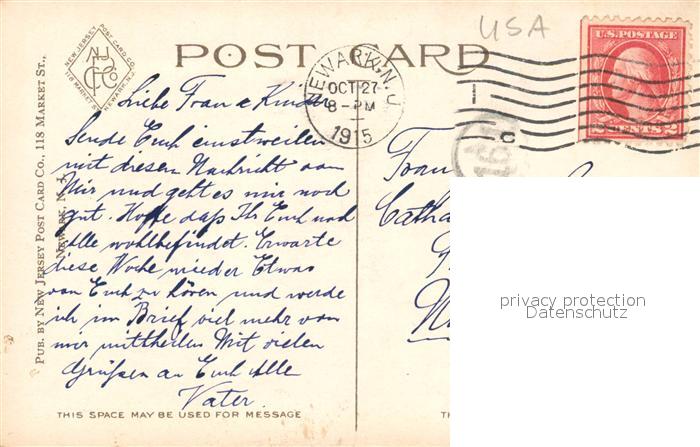 USA
POST CARD
NEW JERSEY POST CARD CO.
118 MARKET ST. NEWARK, N.J.
NEWARK, N.J.
OCT 27
8-PM
1915
U.S. POSTAGE
2 CENTS 2
PUB. BY NEW JERSEY POST CARD CO., 118 MARKET ST.,
NEWARK, N. J.
Liebe Frau & Kinder
Sende Euch einstweilen
mit diesen Nachricht von
Mir und geht es mir noch
gut. Hoffe daß Ihr Euch noch
Alle wohlbefindet. Erwarte
diese Woche wieder Etwas
von Euch zu hören und werde
ich im Brief viel mehr von
mir mittheilen Mit vielen
Grüßen an Euch Alle
Vater.
THIS SPACE MAY BE USED FOR MESSAGE
Frau
Catha
TH
privacy protection
Datenschutz